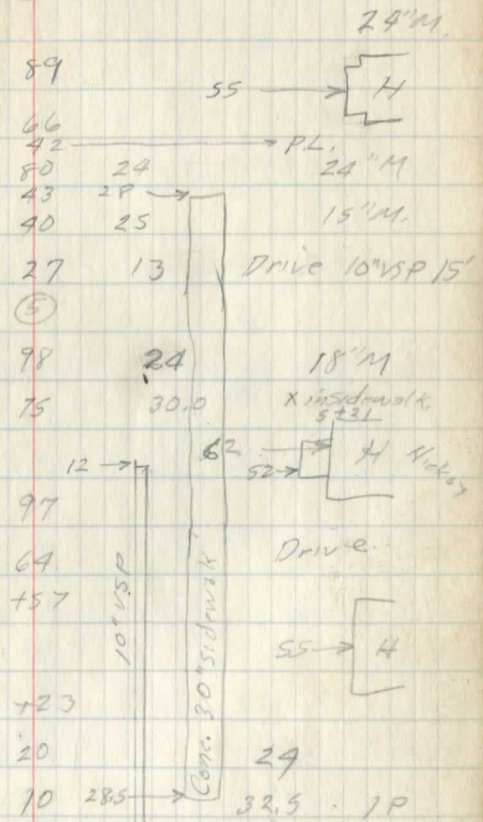 24"M.
89 55 H
66
42 P.L.
80 24 24"M
43 28
40 25 15"M.
27 13 Drive 10"VSP 15'
5
98 24 18"M
75 30.0 X in sidewalk
5+21
62 H
12 52
97
64 Drive
+57
10" VSP
Conc. 30" sidewalk
55 H
+23
20 24
10 28.5 32.5 1P